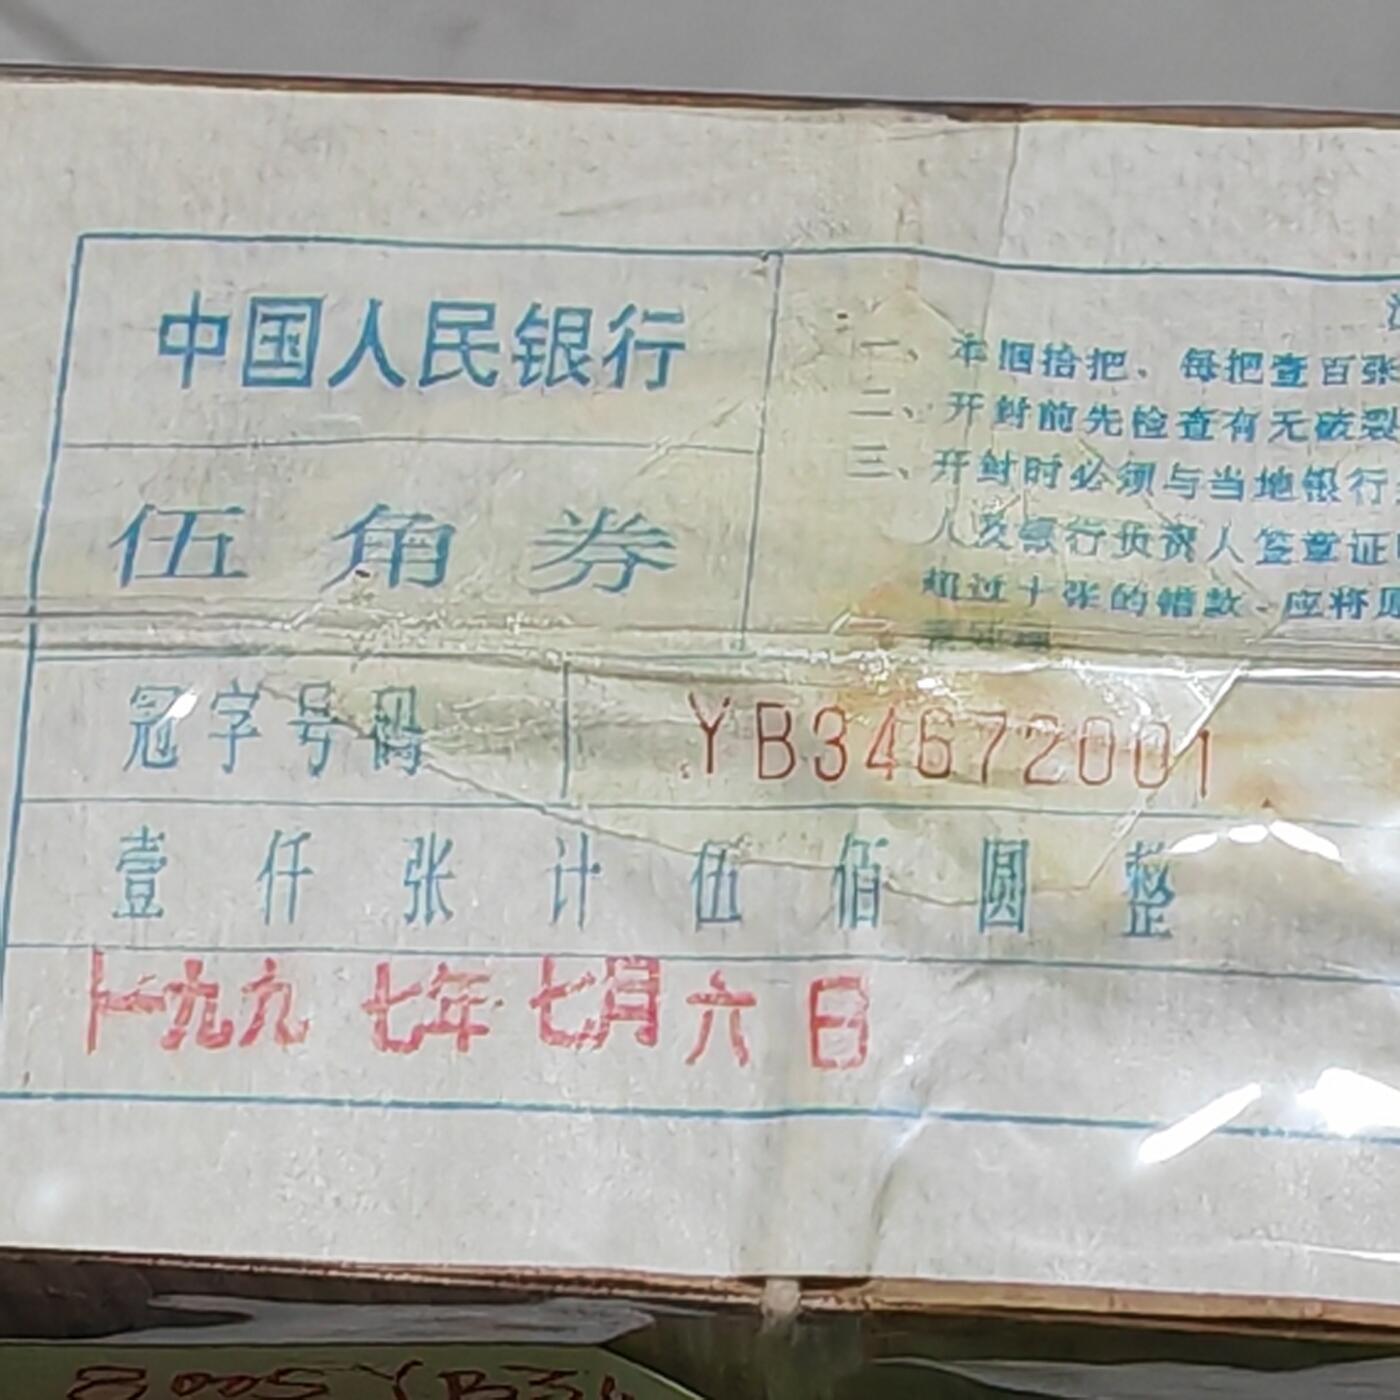 中国人民银行
伍角券
一、本捆拾把、每把壹百张
二、开封前先检查有无破裂
三、开封时必须与当地银行
人及银行负责人签章证
超过十张的错款、应将原
冠字号码 YB34672001
壹仟张计伍佰圆整
一九九七年七月六日
8005 YB34